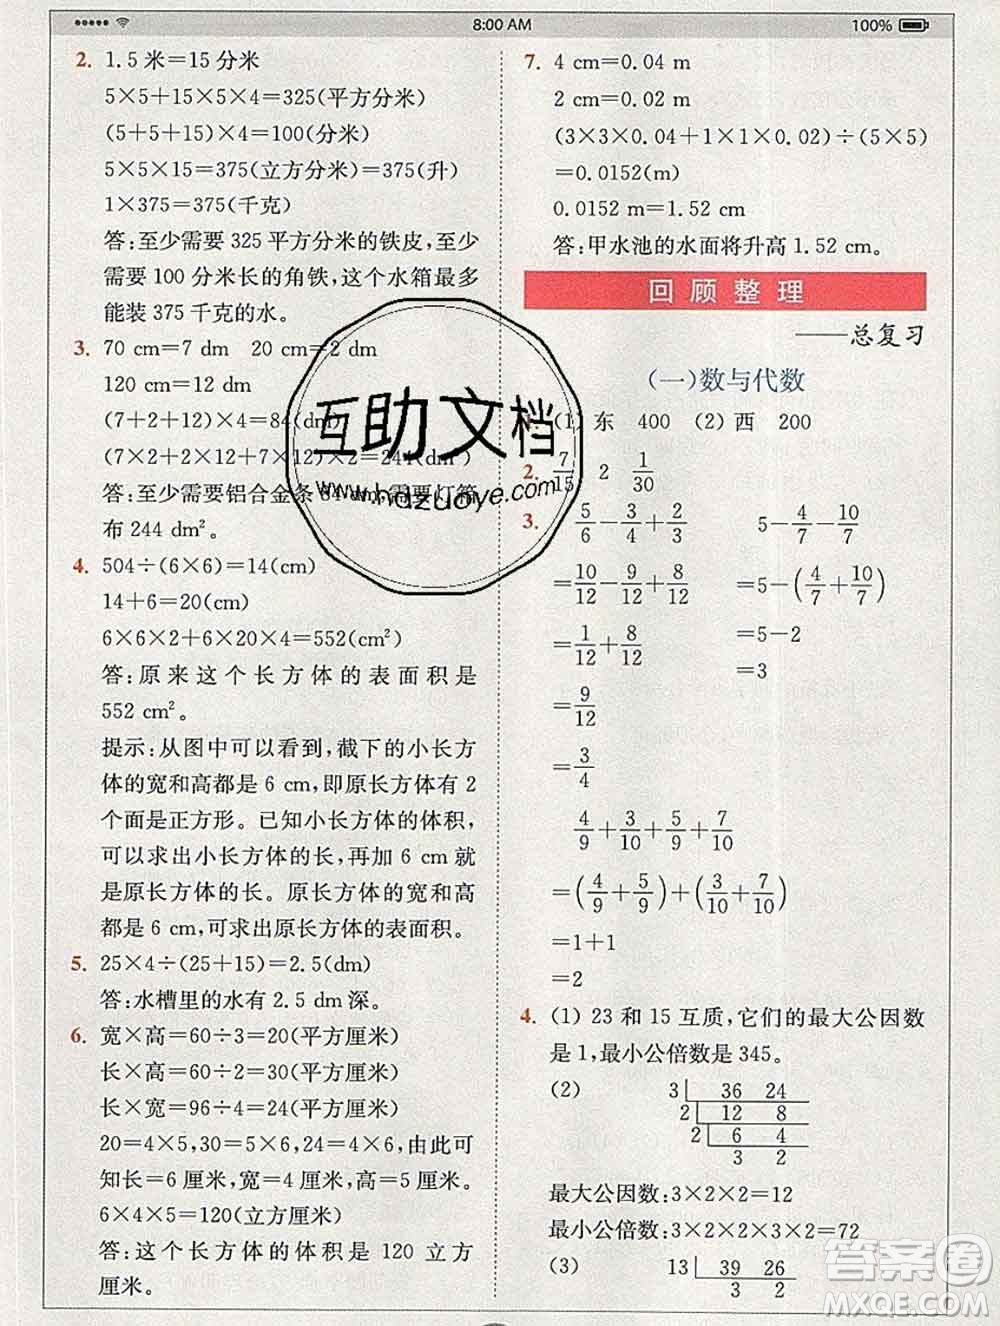 8:00 AM
100%
2. 1.5 米=15 分米
5×5+15×5×4=325(平方分米)
(5+5+15)×4=100(分米)
5×5×15=375(立方分米)=375(升)
1×375=375(千克)
答:至少需要 325 平方分米的铁皮,至少
需要 100 分米长的角铁,这个水箱最多
能装 375 千克的水。
3. 70 cm=7 dm 20 cm=2 dm
120 cm=12 dm
(7+2+12)×4=84(dm)
(7×2+2×12+7×12)×2=244(dm²)
答:至少需要铝合金条 84 dm,需要灯箱
布 244 dm²。
4. 504÷(6×6)=14(cm)
14+6=20(cm)
6×6×2+6×20×4=552(cm²)
答:原来这个长方体的表面积是
552 cm²。
提示:从图中可以看到,截下的小长方
体的宽和高都是 6 cm,即原长方体有 2
个面是正方形。已知小长方体的体积,
可以求出小长方体的长,再加 6 cm 就
是原长方体的长。原长方体的宽和高
都是 6 cm,可求出原长方体的表面积。
5. 25×4÷(25+15)=2.5(dm)
答:水槽里的水有 2.5 dm 深。
6. 宽×高=60÷3=20(平方厘米)
长×高=60÷2=30(平方厘米)
长×宽=96÷4=24(平方厘米)
20=4×5,30=5×6,24=4×6,由此可
知长=6 厘米,宽=4 厘米,高=5 厘米。
6×4×5=120(立方厘米)
答:这个长方体的体积是 120 立方
厘米。
7. 4 cm=0.04 m
2 cm=0.02 m
(3×3×0.04+1×1×0.02)÷(5×5)
=0.0152(m)
0.0152 m=1.52 cm
答:甲水池的水面将升高 1.52 cm。
回顾整理
——总复习
(一)数与代数
1. (1)东 400 (2)西 200
2. 7/15 2 1/30
3. 5/6-3/4+2/3 5-4/7-10/7
=10/12-9/12+8/12 =5-(4/7+10/7)
=1/12+8/12 =5-2
=9/12 =3
=3/4
4/9+3/10+5/9+7/10
=(4/9+5/9)+(3/10+7/10)
=1+1
=2
4. (1) 23 和 15 互质,它们的最大公因数
是 1,最小公倍数是 345。
(2) 3 36 24
2 12 8
2 6 4
3 2
最大公因数:3×2×2=12
最小公倍数:3×2×2×3×2=72
(3) 13 39 26
3 2
互助文档
www.hdzuoye.com
答案圈
MXQE.COM